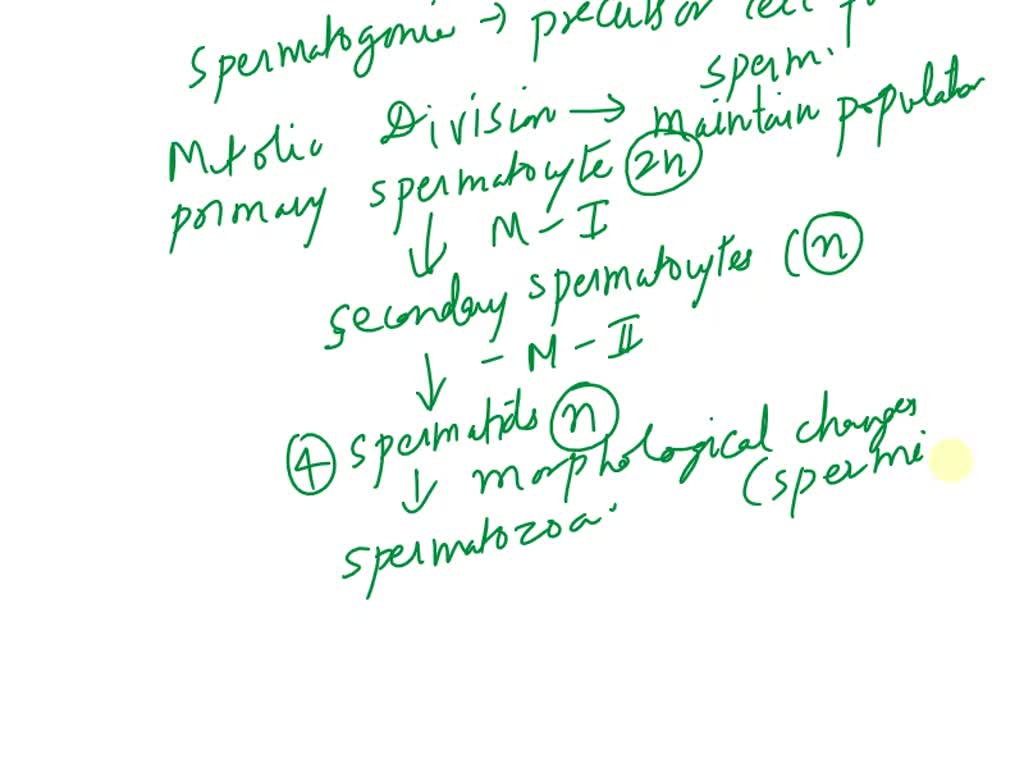 spermatogonie → precursor cell
sperm.
Mitotic Division → maintain population
primary spermatocyte 2n
↓ M - I
secondary spermatocytes (n
↓ - M - II
4 spermatids n
↓ morphological changes
(spermi
spermatozoa.